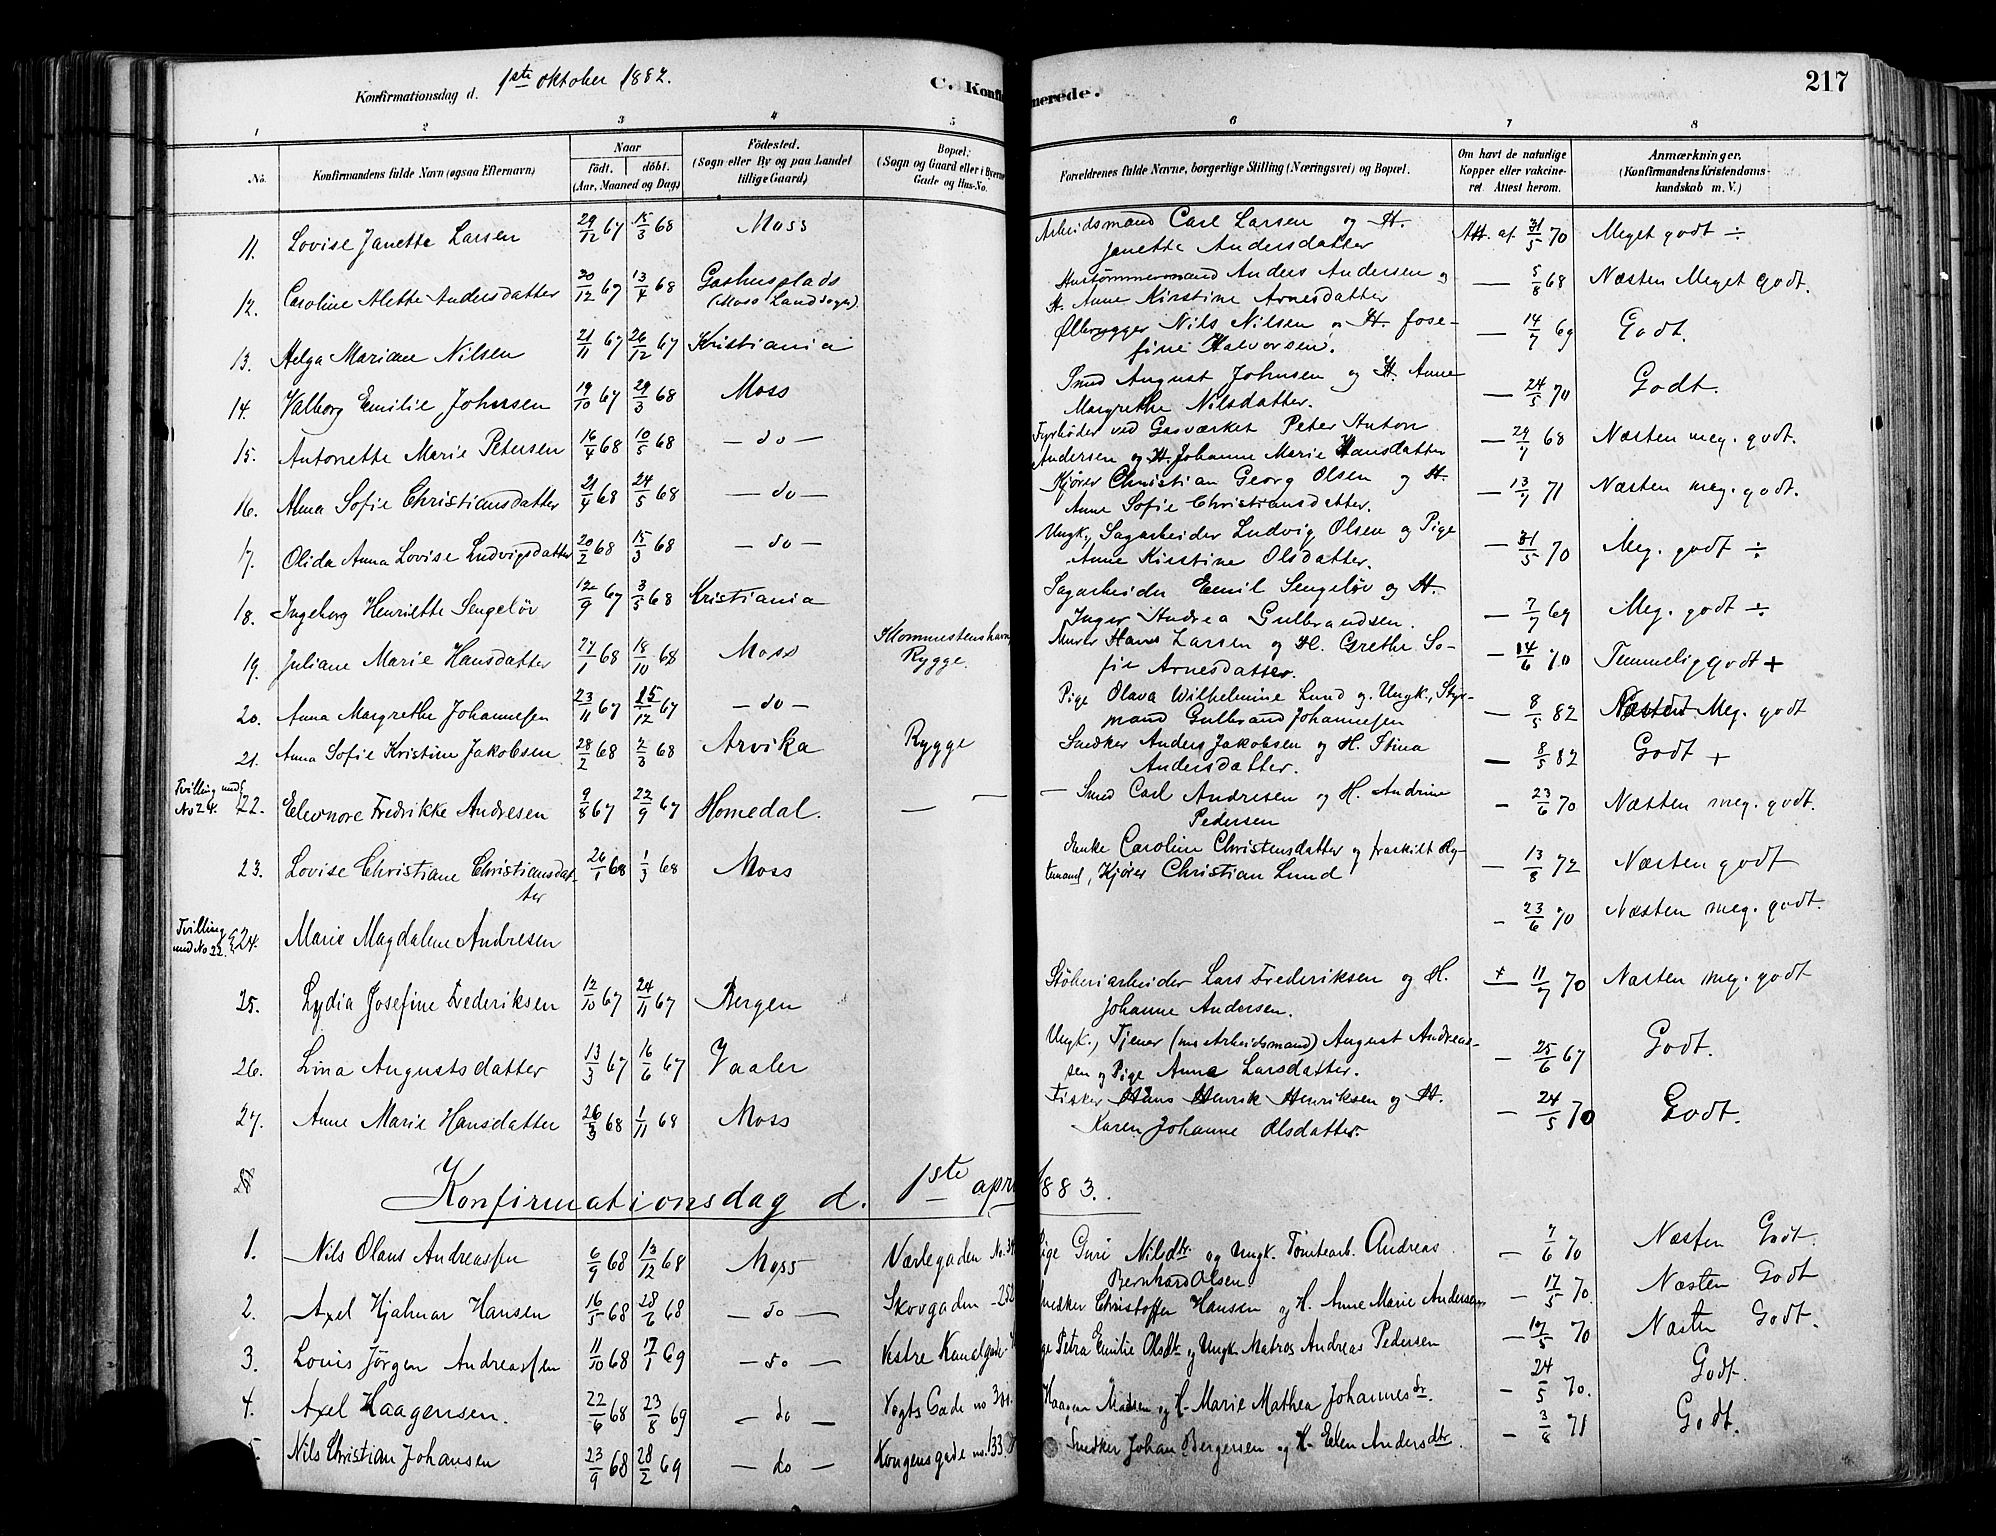 Konfirmationsdag d. 1ste oktober 1882.
C. Konfi
merede.
217
1 2 3 4 5 6 7 8
No.
Konfirmandens fulde Navn (ogsaa Efternavn)
Naar
födt. döbt.
(Aar, Maaned og Dag)
Födested.
(Sogn eller By og paa Landet
tillige Gaard)
Bopæl.
(Sogn og Gaard eller i Byerne
Gade og Hus-No.
Forældrenes fulde Navne, borgerlige Stilling (Næringsvei) og Bopæl.
Om havt de naturlige
Kopper eller vakcine-
ret. Attest herom.
Anmærkninger.
(Konfirmandens Kristendoms-
kundskab m. V.)
11. Lovise Janette Larsen 29/12 67 15/3 68 Moss Arbeidsmand Carl Larsen og H. Att. af 31/5 70 Meget godt ÷
Janette Andersdatter
12. Caroline Alette Andersdatter 20/12 67 13/4 68 Gashusplads Hustömmermand Anders Andersen og — 5/8 68 Næsten Meget Godt.
(Moss Landsogn). H. Anne Kirstine Arnesdatter
13. Helga Mariane Nilsen 21/11 67 26/12 67 Kristiania Ølbrygger Nils Nilsen og H. Jose- — 14/7 69 Godt.
fine Halvorsen.
14. Valborg Emilie Johnsen 19/10 67 29/3 68 Moss Smed August Johnsen og H. Anne — 24/5 70 Godt.
Margrethe Nilsdatter.
15. Antonette Marie Petersen 16/4 68 10/5 68 — do — Fyrböder ved Gasværket Peter Anton — 29/7 68 Næsten meg. godt.
Andersen og H. Johanne Marie Hansdatter
16. Anna Sofie Christiansdatter 21/4 68 24/5 68 — do — Kjører Christian Georg Olsen og H. — 13/7 71 Næsten meg. godt.
Anne Sofie Christiansdatter.
17. Olida Anna Lovise Ludvigsdatter 20/2 68 15/3 68 — do — Ungk., Sagarbeider Ludvig Olsen og Pige — 31/5 70 Meg. godt ÷
Anne Kirstine Olsdatter.
18. Ingeborg Henriette Sengelöv 12/9 67 3/5 68 Kristiania Sagarbeider Emil Sengelöv og H. — 7/7 69 Meg. godt ÷
Inger Andrea Gulbrandsen.
19. Juliane Marie Hansdatter 27/1 68 18/10 68 Moss Rygge Murer Hans Larsen og H. Grethe So- — 14/6 70 Temmelig godt +
fie Arnesdatter.
20. Anna Margrethe Johannesen 23/11 67 25/12 67 — do — Pige Olava Wilhelmine Lund og Ungk., Styr- — 8/5 82 Næsten Meg. godt
mand Gulbrand Johannesen
21. Anna Sofie Kristine Jakobsen 28/2 68 2/3 68 Arvika Rygge Snedker Anders Jakobsen og H. Stina — 8/5 82 Godt +
Andersdatter.
Tvilling med
No 24. 22. Eleonore Fredrikke Andresen 9/8 67 22/9 67 Homedal. — — — Smed Carl Andresen og H. Andrine — 23/6 70 Næsten meg. godt.
Pedersen
23. Lovise Christiane Christiansdat- 26/1 68 1/3 68 Moss Enke Caroline Christensdatter og fraskilt — 13/8 72 Næsten godt
ter Kjører Christian Lund
Tvilling
med No 22. 24. Marie Magdalene Andresen — 23/6 70 Næsten meg. godt.
25. Lydia Josefine Frederiksen 12/10 67 24/11 67 Bergen Stöberiarbeider Lars Frederiksen og H. — 11/7 70 Næsten meg. godt
Johanne Andersen.
26. Lina Augustsdatter 13/3 67 16/6 67 Vaaler Ungk., Tjener (nu Arbeidsmand) August Andreas- — 25/6 67 Godt.
sen og Pige Anne Larsdatter.
27. Anne Marie Hansdatter 26/3 68 1/11 68 Moss Fisker Hans Henrik Henriksen og H. — 24/5 70 Godt.
Karen Johanne Olsdatter.
28 Konfirmationsdag d. 1ste apr 1883.
1. Nils Olaus Andreassen 6/9 68 13/12 68 Moss Værlegaden No. ige Guri Nilsdtr og Ungk. Tömtearb. Andreas — 7/6 70 Næsten Godt
Bernhard Olsen.
2. Axel Hjalmar Hansen 16/5 68 28/6 68 — do — Skovgaden - 252 nedker Christoffer Hansen og H. Anne Marie Andersen — 17/5 70. Næsten Godt
3. Louis Jörgen Andreassen 11/10 68 17/1 69 — do — Vestre Kanalgade ge Petra Emilie Olsdtr og Ungk. Matros Andreas Pedersen — 19/5 70 Næsten Godt.
4. Axel Haagensen. 22/6 68 23/8 69 — do — Vogts Gade no Haagen Madsen og H. Marie Mathea Johannesdtr. — 24/5 70. Godt.
5. Nils Christian Johansen 23/9 68 28/2 69 — do — Kongensgade no. 133 Snedker Johan Bergersen og H. Ellen Andersdtr. — 3/8 71 Godt.